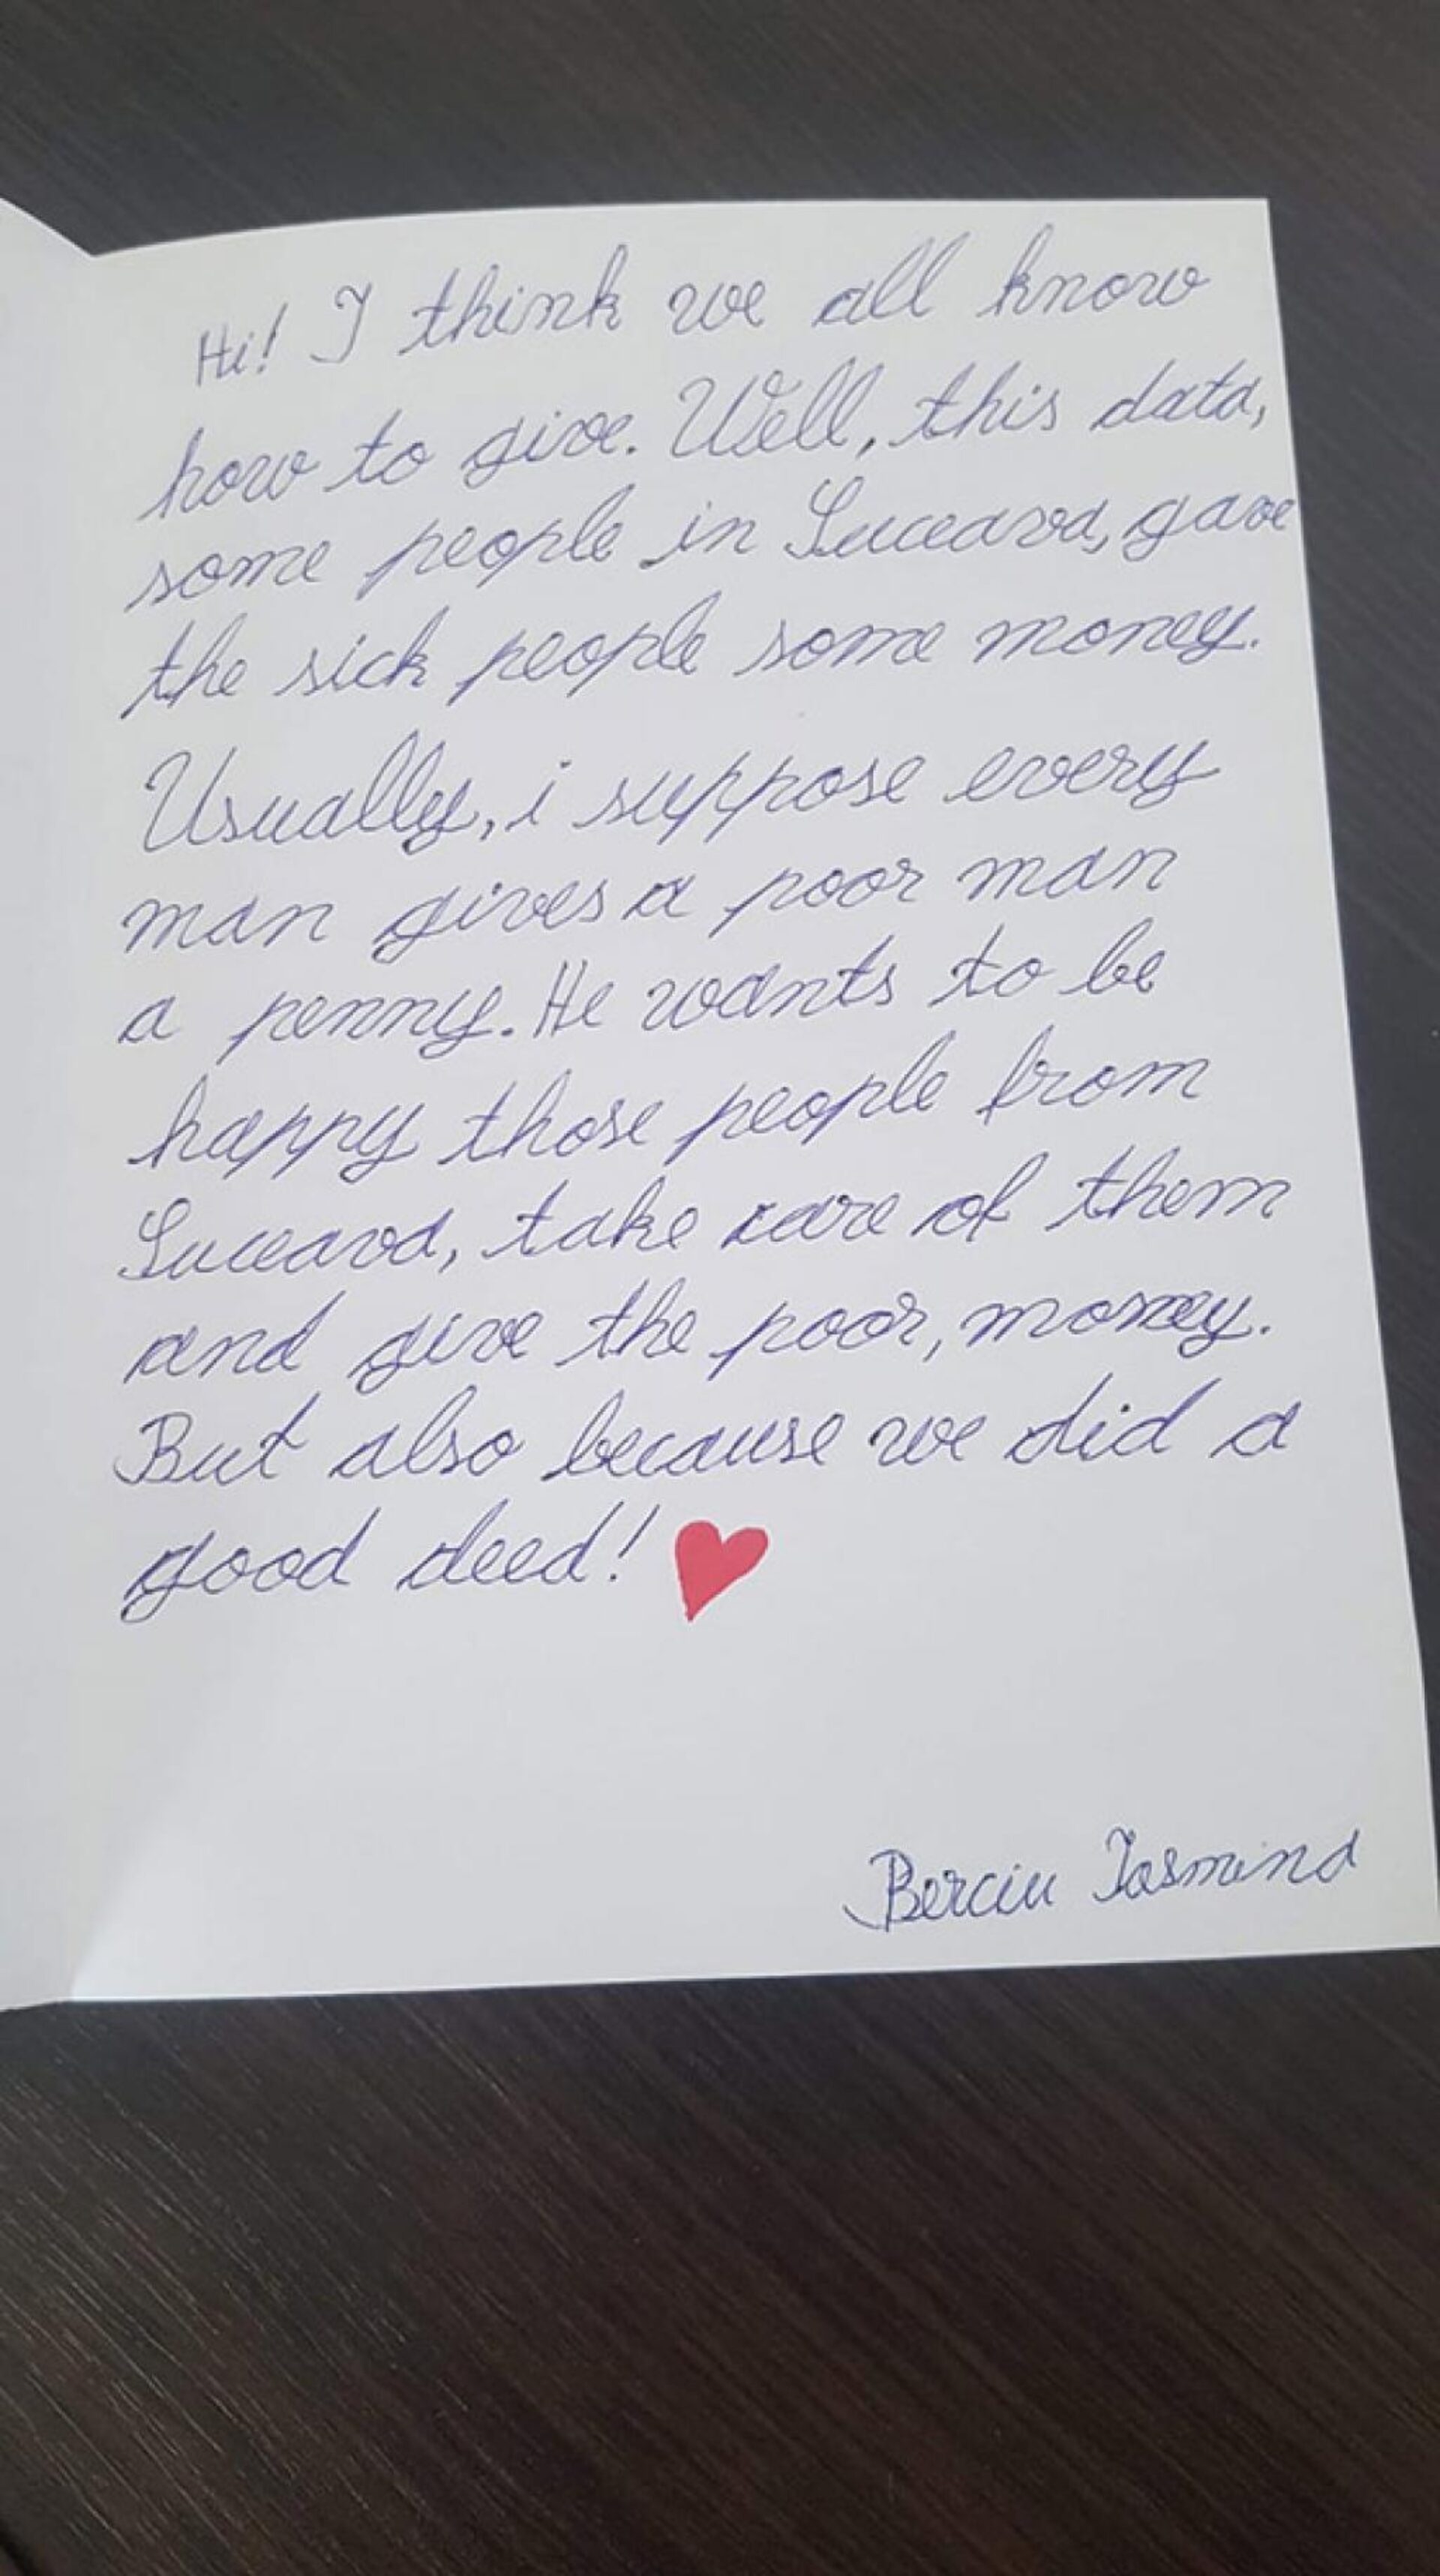 Hi! I think we all know
how to give. Well, this data,
some people in Suceava, gave
the sick people some money.
Usually, i suppose every
man gives a poor man
a penny. He wants to be
happy those people from
Suceava, take care of them
and give the poor, money.
But also because we did a
good deed! ❤
Berciu Iasmina